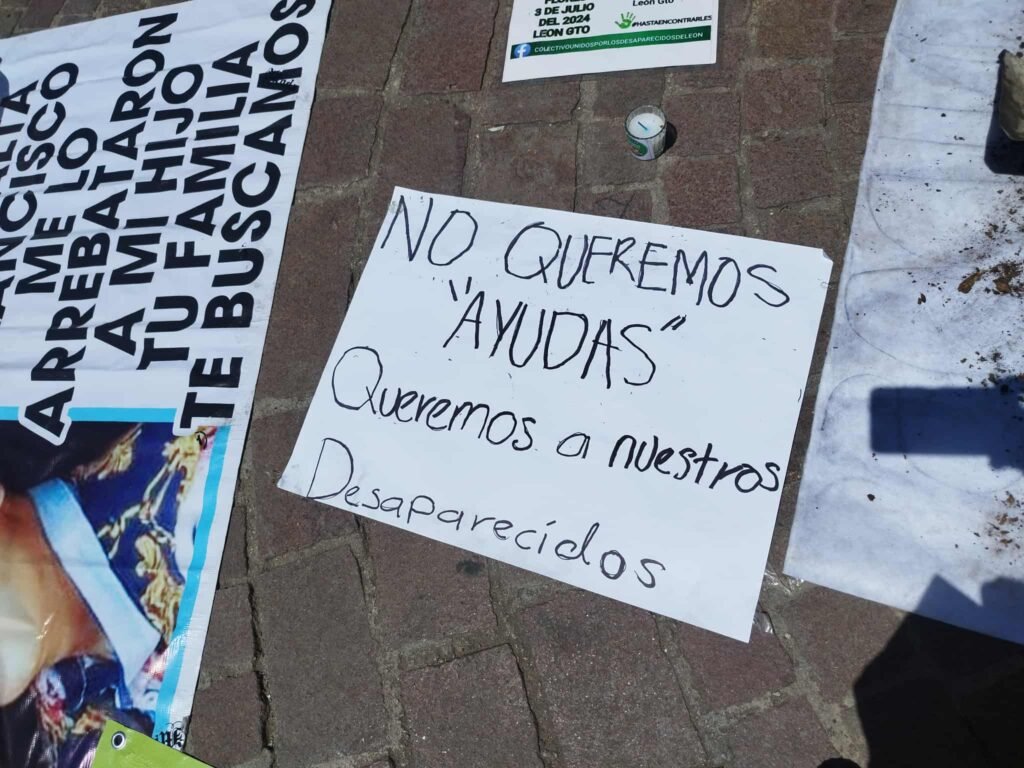 ME LO
ARREBATARON
A MI HIJO
TU FAMILIA
TE BUSCAMOS
3 DE JULIO
DEL 2024
LEON GTO
Leon Gto
#HASTAENCONTRARLES
COLECTIVOUNIDOSPORLOSDESAPARECIDOSDELEON
NO QUEREMOS
"AYUDAS"
Queremos a nuestros
Desaparecidos